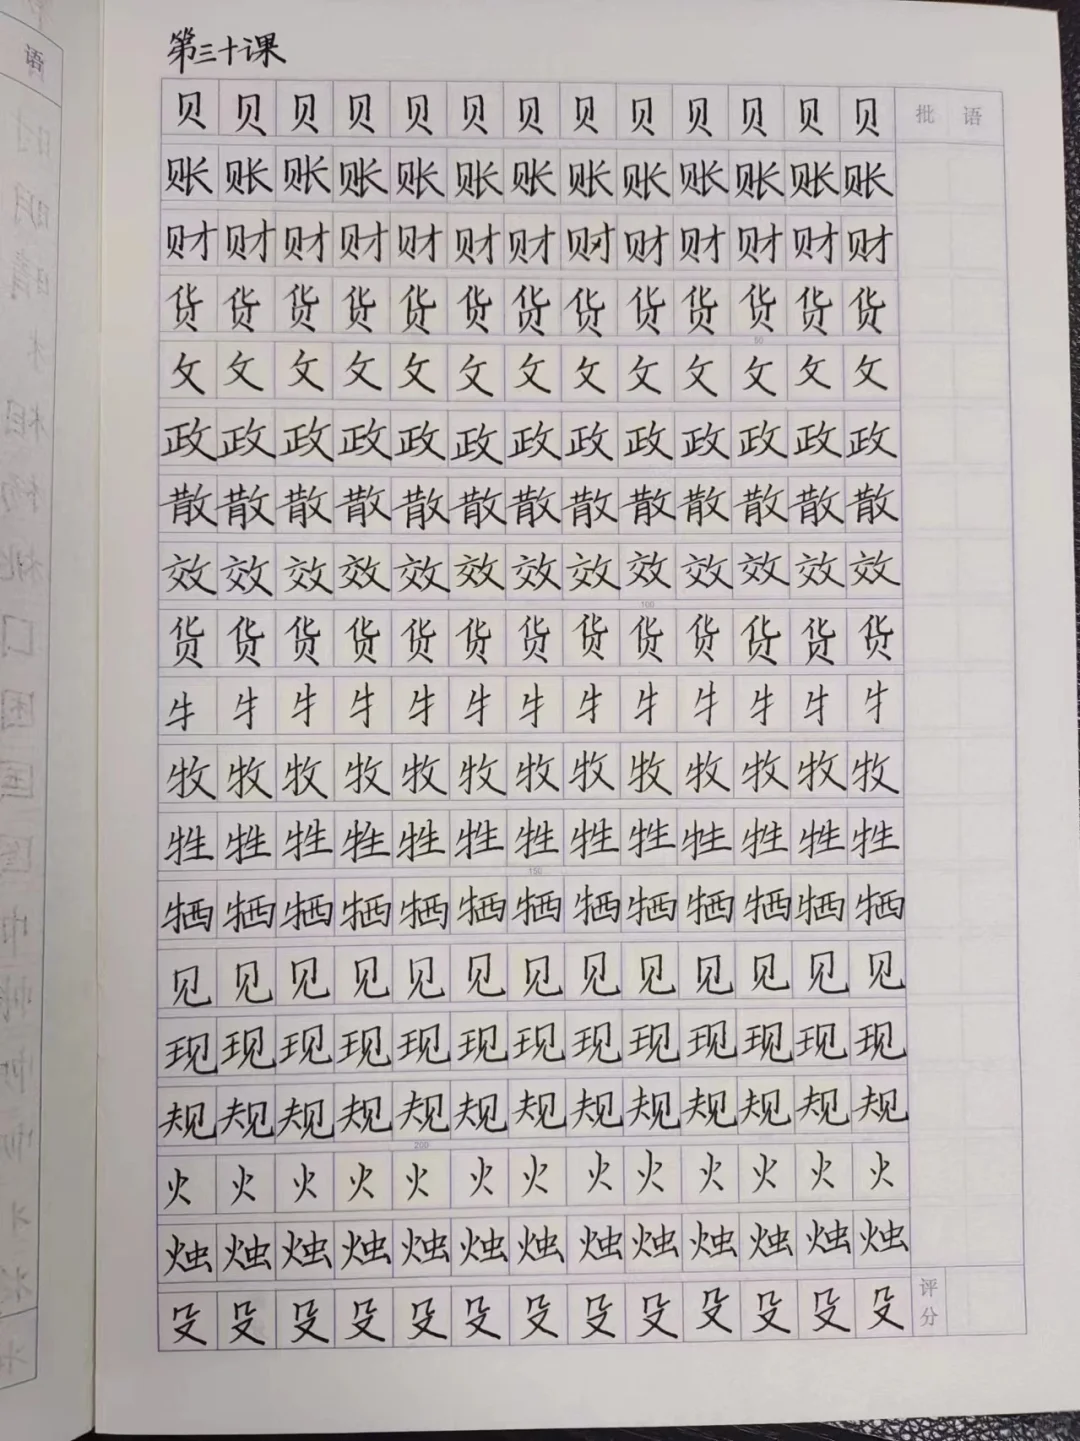 第三十课
贝贝贝贝贝贝贝贝贝贝贝贝贝 批语
账账账账账账账账账账账账账
财财财财财财财财财财财财财
货货货货货货货货货货货货货
50
攵攵攵攵攵攵攵攵攵攵攵攵攵
政政政政政政政政政政政政政
散散散散散散散散散散散散散
效效效效效效效效效效效效效
100
货货货货货货货货货货货货货
牜牜牜牜牜牜牜牜牜牜牜牜牜
牧牧牧牧牧牧牧牧牧牧牧牧牧
牲牲牲牲牲牲牲牲牲牲牲牲牲
150
牺牺牺牺牺牺牺牺牺牺牺牺牺
见见见见见见见见见见见见见
现现现现现现现现现现现现现
规规规规规规规规规规规规规
200
火火火火火火火火火火火火火
烛烛烛烛烛烛烛烛烛烛烛烛烛
殳殳殳殳殳殳殳殳殳殳殳殳殳 评分
语